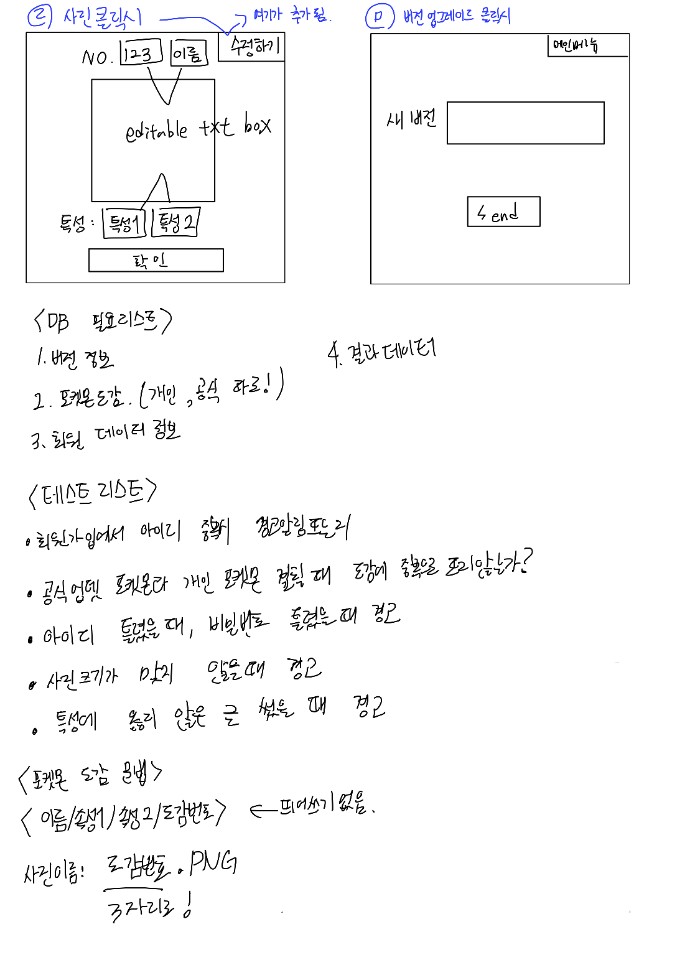 ㉣ 사진 클릭시 → 여기가 추가됨.
NO. 123 이름 수정하기
editable txt box
특성 : 특성1 특성2
확인
㉤ 버전 업그레이드 클릭시
메인메뉴
새 버전
Send
<DB 필요리스트>
1. 버전 정보
2. 포켓몬 도감. (개인, 공식 따로!)
3. 회원 데이터 정보
4. 결과 데이터
<테스트 리스트>
• 회원가입에서 아이디 중복시 경고알림 뜨는지
• 공식업뎃 포켓몬과 개인 포켓몬 겹칠 때 도감에 중복으로 뜨지 않는가?
• 아이디 틀렸을 때, 비밀번호 틀렸을 때 경고
• 사진크기가 맞지 않을때 경고
• 특성에 옳지 않은 글 썼을 때 경고
<포켓몬 도감 문법>
<이름/속성1/속성2/도감번호> ← 띄어쓰기 없음.
사진이름: 도감번호.PNG
3자리로!